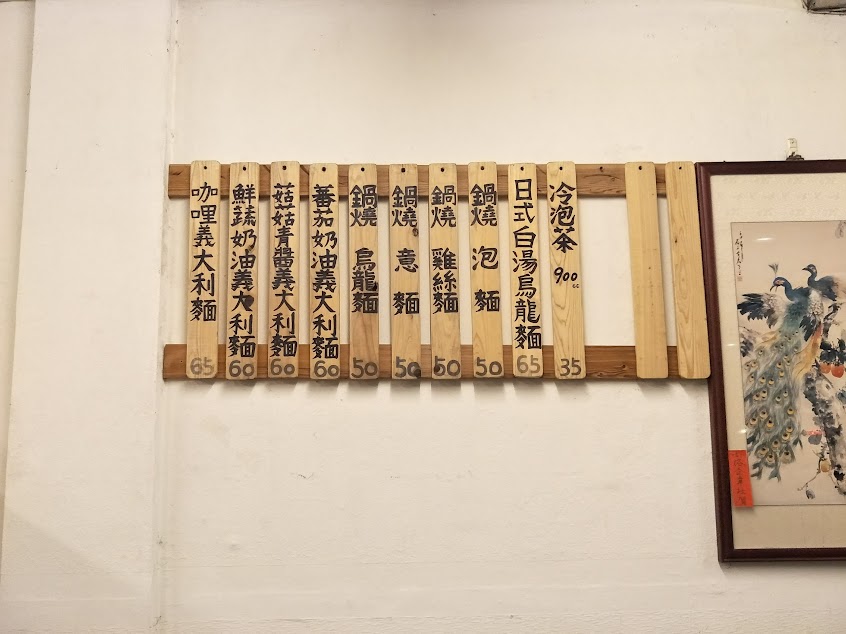 咖哩義大利麵 65
鮮蔬奶油義大利麵 60
菇菇青醬義大利麵 60
蕃茄奶油義大利麵 60
鍋燒 烏龍麵 50
鍋燒 意麵 50
鍋燒 雞絲麵 50
鍋燒 泡麵 50
日式白湯烏龍麵 65
冷泡茶 900cc 35